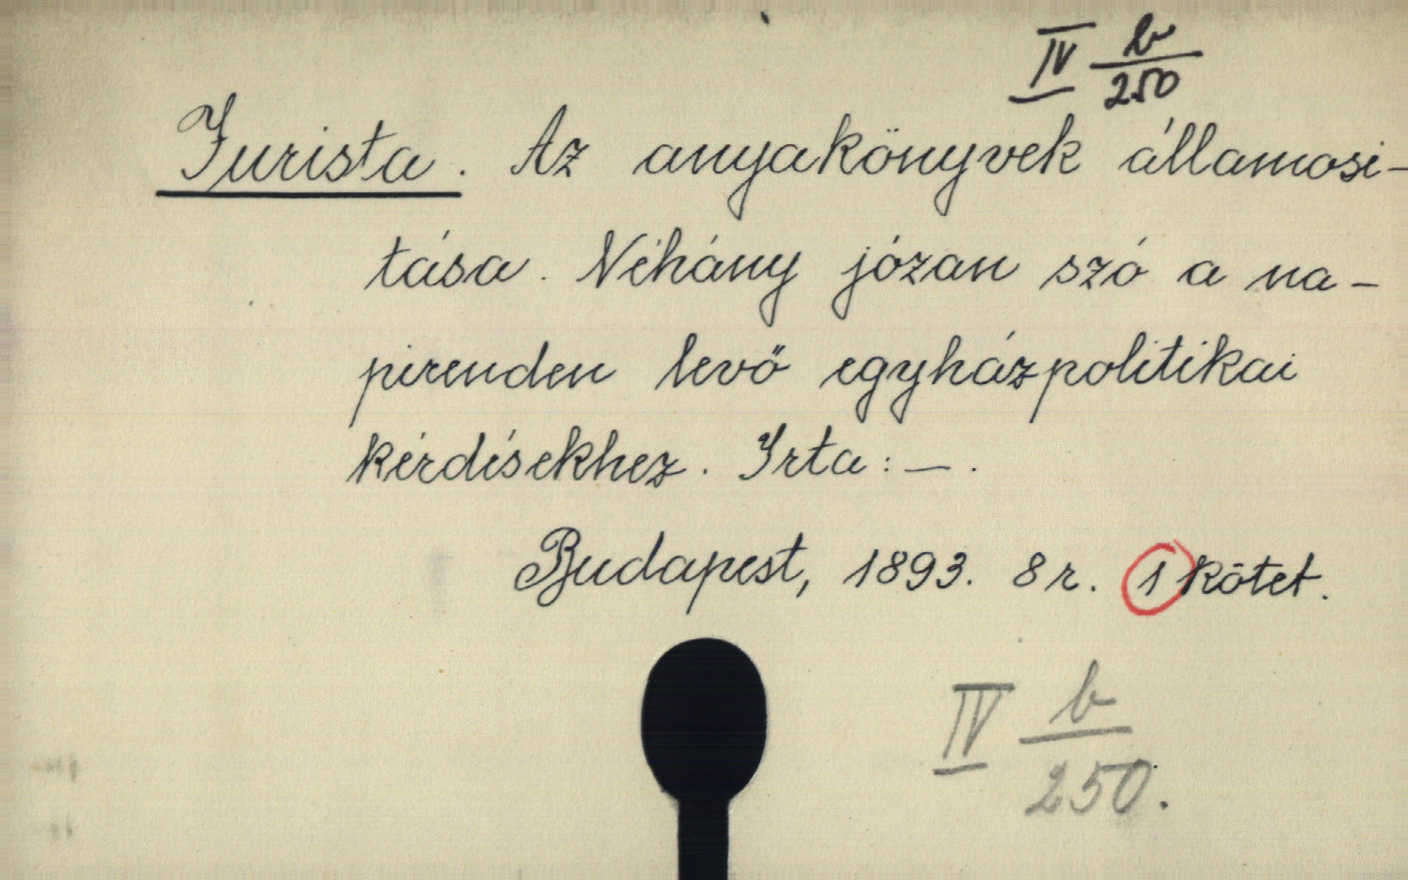 IV b/250
Jurista. Az anyakönyvek államosi-
tása. Néhány józan szó a na-
pirenden levő egyházpolitikai
kérdésekhez. Irta: — .
Budapest, 1893. 8r. 1 kötet.
IV b/250.